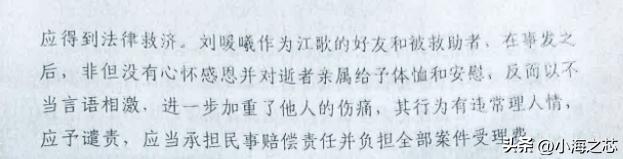 应得到法律救济。刘暖曦作为江歌的好友和被救助者,在事发之
后,非但没有心怀感恩并对逝者亲属给予体恤和安慰,反而以不
当言语相激,进一步加重了他人的伤痛,其行为有违常理人情,
应予谴责,应当承担民事赔偿责任并负担全部案件受理费。
头条 @小海之芯